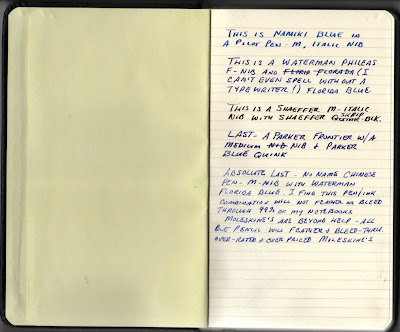 THIS IS NAMIKI BLUE IN
A PILOT PEN-M, ITALIC NIB
THIS IS A WATERMAN PHILEAS
F-NIB AND FLORIA FLORADA (I
CAN'T EVEN SPELL WITHOUT A
TYPEWRITER!) FLORIDA BLUE.
THIS IS A SHAEFFER M-ITALIC
NIB WITH SHAEFFER SKRIP BLK.
LAST- A PARKER FRONTIER W/A
MEDIUM NIB & PARKER
BLUE QUINK
ABSOLUTE LAST- NO NAME CHINESE
PEN-M-NIB WITH WATERMAN
FLORIDA BLUE. I FIND THIS PEN/INK
COMBINATION WILL NOT FEATHER OR BLEED
THROUGH 99% OF MY NOTEBOOKS
MOLESKINE'S ARE BEYOND HELP-ALL
BUT PENCIL WILL FEATHER & BLEED-THRU.
OVER-RATED & OVER PRICED MOLESKINE'S